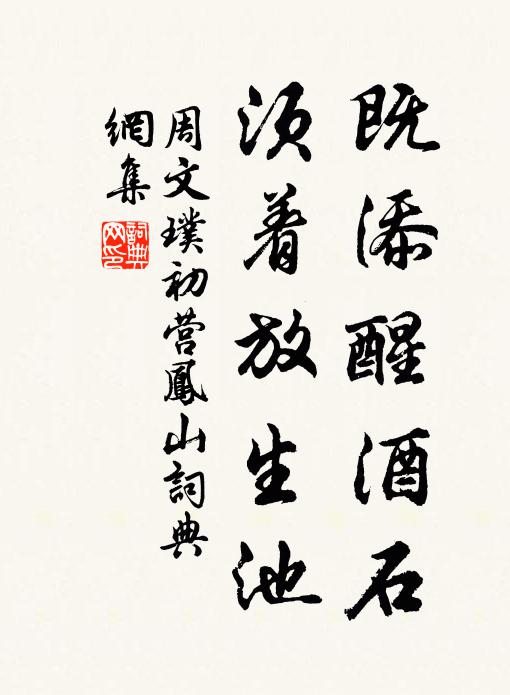 既添醒酒石
须着放生池
周文璞初营鳳山詞典
網集
詞典
网印